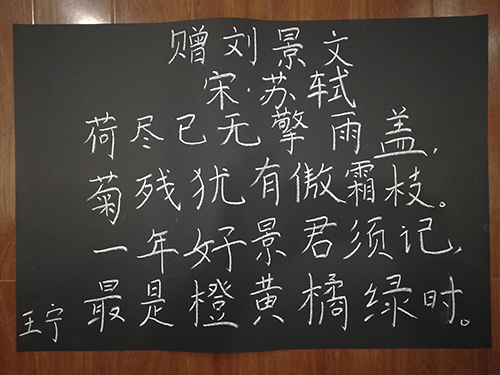 赠刘景文
宋·苏轼
荷尽已无擎雨盖,
菊残犹有傲霜枝。
一年好景君须记,
最是橙黄橘绿时。
王宁